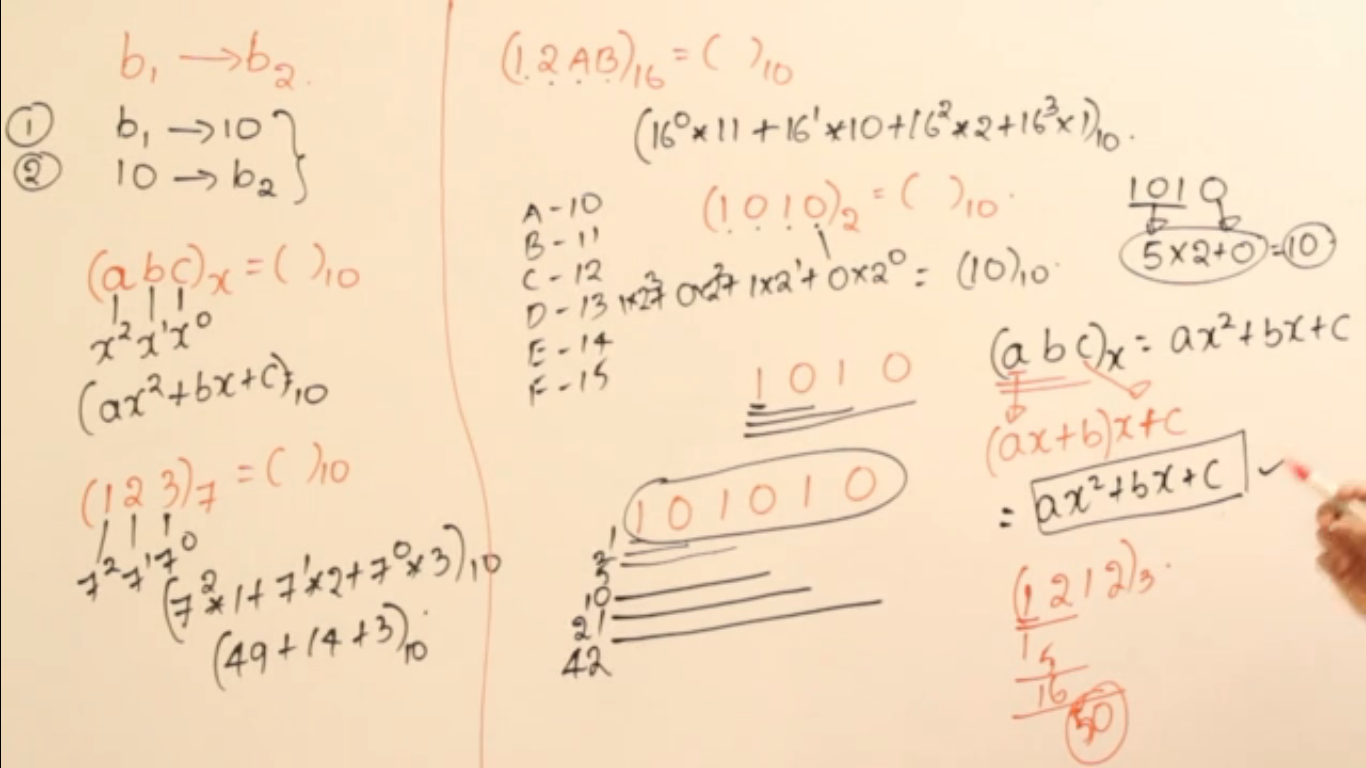 b₁ → b₂.
① b₁ → 10
② 10 → b₂
(a b c)ₓ = ( )₁₀
x² x¹ x⁰
(ax² + bx + c)₁₀
(1 2 3)₇ = ( )₁₀
7² 7¹ 7⁰
(7² * 1 + 7¹ * 2 + 7⁰ * 3)₁₀
(49 + 14 + 3)₁₀
(1 2 A B)₁₆ = ( )₁₀
(16⁰ * 11 + 16¹ * 10 + 16² * 2 + 16³ * 1)₁₀.
A - 10
B - 11
C - 12
D - 13
E - 14
F - 15
(1 0 1 0)₂ = ( )₁₀.
1×2³ + 0×2² + 1×2¹ + 0×2⁰ = (10)₁₀.
1010
5×2+0 = 10
1 0 1 0
1 0 1 0 1 0
1
2
5
10
21
42
(a b c)ₓ = ax² + bx + c
(ax + b)x + c
= ax² + bx + c ✓
(1 2 1 2)₃.
1
5
16
50